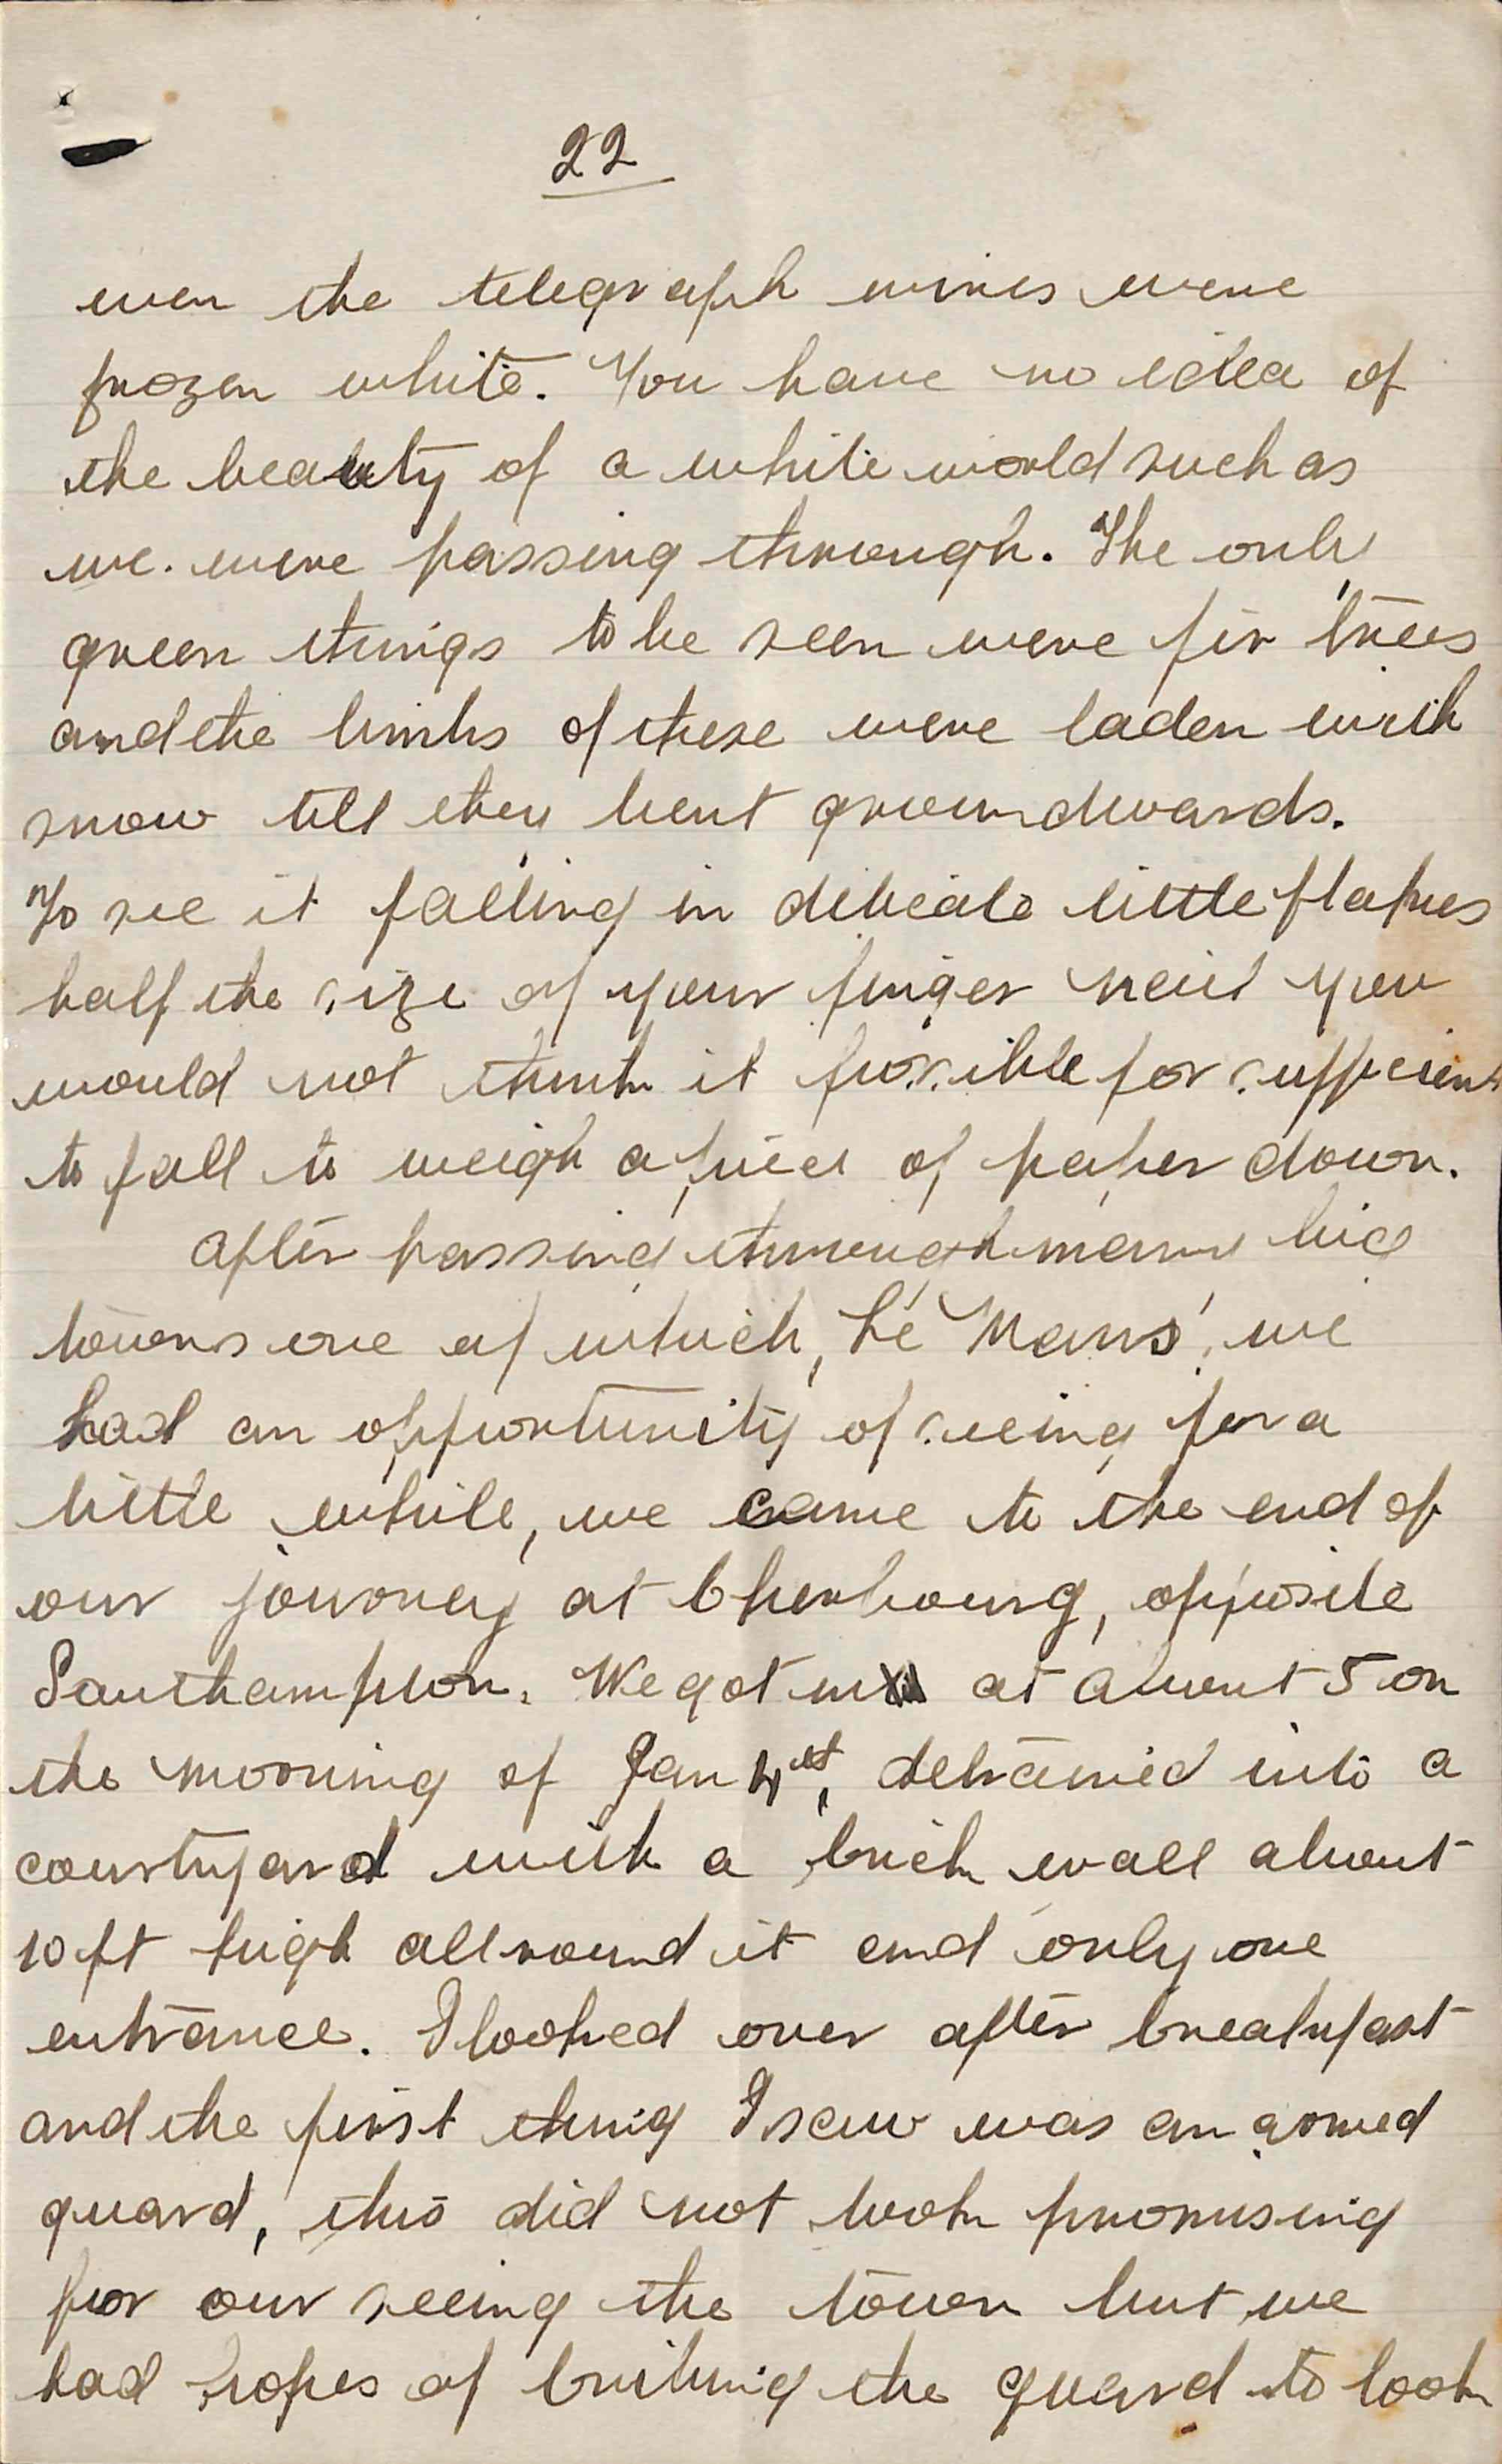 22
even the telegraph wires were
frozen white. You have no idea of
the beauty of a white world such as
we were passing through. The only
green things to be seen were fir trees
and the limbs of these were laden with
snow till they bent groundwards.
To see it falling in delicate little flakes
half the size of your finger nail you
would not think it possible for sufficient
to fall to weigh a piece of paper down.
After passing through many big
towns one of which, 'Le Mans', we
had an opportunity of seeing for a
little while, we came to the end of
our journey at Cherbourg, opposite
Southampton. We got in at about 5 on
the morning of Jan 4st, detrained into a
courtyard with a brick wall about
10 ft high all round it and only one
entrance. I looked over after breakfast
and the first thing I saw was an armed
guard, this did not look promising
for our seeing the town but we
had hopes of bribing the guard to look